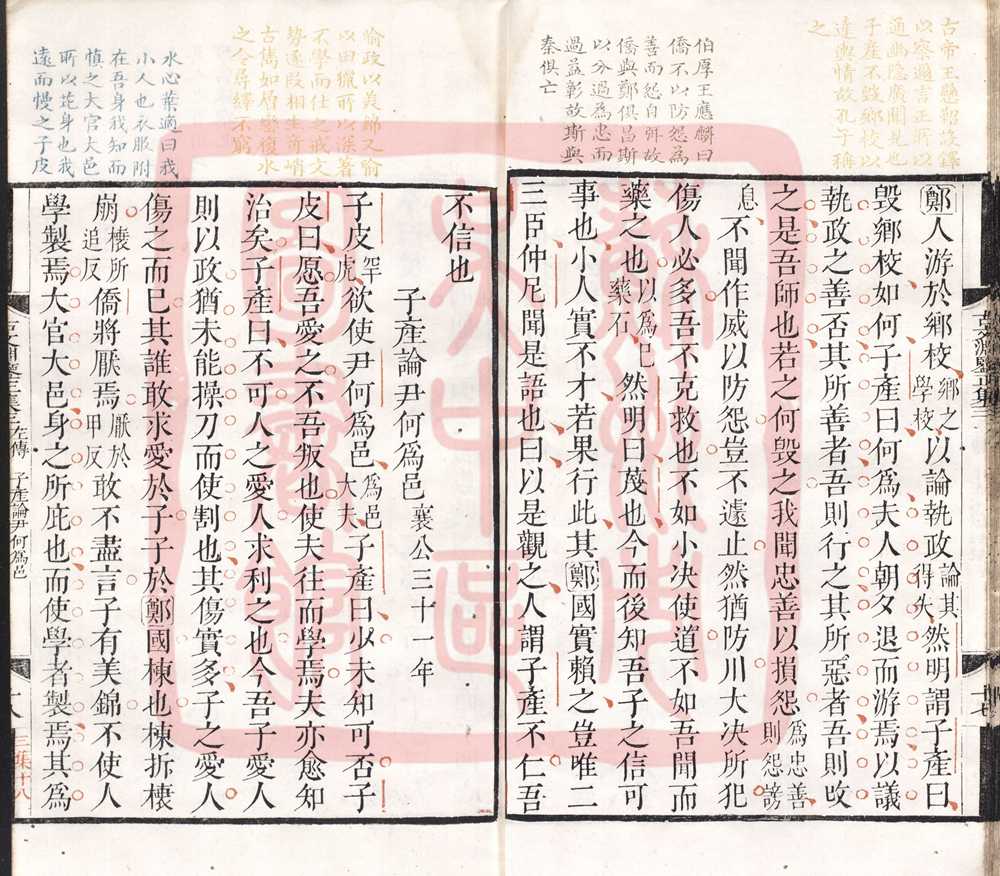 古帝王懸鞀設鐸
以察邇言正所以
通幽隱廣聞見也
子產不毀鄉校以
達輿情故孔子稱
之
伯厚王應麟曰
僑不以防怨為
善而怨自弭故
僑與鄭俱昌斯
以分過為忠而
過益彰故斯與
秦俱亡
鄭人游於鄉校鄉之學校以論執政論其得失然明謂子產曰
毀鄉校如何子產曰何爲夫人朝夕退而游焉以議
執政之善否其所善者吾則行之其所惡者吾則改
之是吾師也若之何毀之我聞忠善以損怨爲忠善則怨謗
息不聞作威以防怨豈不遽止然猶防川大决所犯
傷人必多吾不克救也不如小决使道不如吾聞而
藥之也以爲己藥石然明曰蔑也今而後知吾子之信可
事也小人實不才若果行此其鄭國實賴之豈唯二
三臣仲尼聞是語也曰以是觀之人謂子產不仁吾
喻政以美錦又喻
以田獵所以深著
不學而仕之戒文
勢遂段相生奇峭
古雋如層巒復水
之令尋繹不窮
水心葉適曰我
小人也衣服附
在吾身我知而
慎之大官大邑
所以庇身也我
遠而慢之子皮
不信也
子產論尹何爲邑襄公三十一年
子皮罕虎欲使尹何爲邑爲邑大夫子產曰少未知可否子
皮曰愿吾愛之不吾叛也使夫往而學焉夫亦愈知
治矣子產曰不可人之愛人求利之也今吾子愛人
則以政猶未能操刀而使割也其傷實多子之愛人
傷之而已其誰敢求愛於子子於鄭國棟也棟折榱
崩榱所追反僑將厭焉厭於甲反敢不盡言子有美錦不使人
學製焉大官大邑身之所庇也而使學者製焉其爲
左傳 子產論尹何爲邑
三集十八